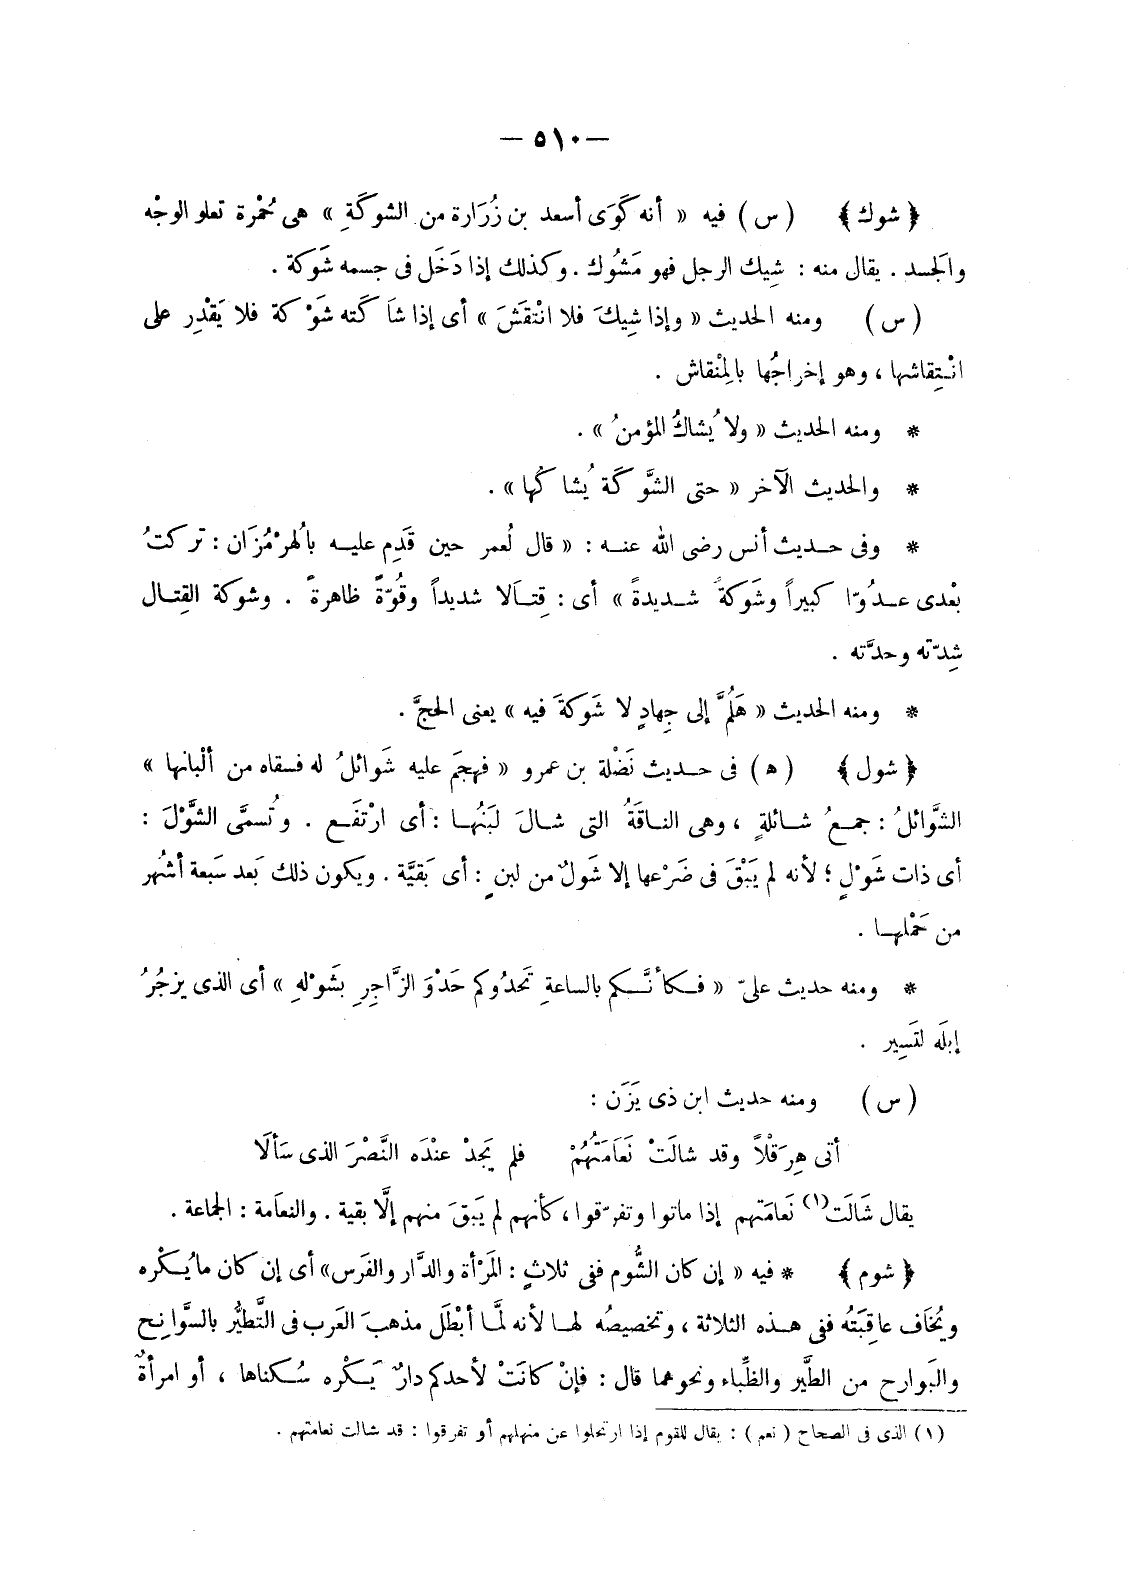 — ٥١٠ —
﴿ شوك ﴾ (س) فيه « أنه كَوَى أسعد بن زُرَارة من الشوكَةِ » هى حُمْرة تعلو الوجْه
والجَسد . يقال منه : شِيك الرجل فهو مَشُوك . وكذلك إذا دَخَل فى جسمه شَوكة .
(س) ومنه الحديث « وإذا شِيكَ فلا انْتقَشَ » أى إذا شاَكَته شوْكة فلا يَقْدِر على
انْتِقاشها ، وهو إخراجُها بالمِنْقاش .
* ومنه الحديث « ولا يُشاكُ المؤمنُ » .
* والحديث الآخر « حتى الشَّوكَة يُشاكُها » .
* وفى حديث أنس رضى الله عنه : « قال لُعمر حين قَدِم عليه بالُهرْمُزَان : تركتُ
بْعدى عدُوّا كبيراً وشَوكةً شديدةً » أى : قِتَالا شديداً وقُوّةً ظاهرةً . وشوكة القِتال
شِدّته وحدَّته .
* ومنه الحديث « هَلُمَّ إلى جِهادٍ لا شَوكةَ فيه » يعنى الحجَّ .
﴿ شول ﴾ (ه) فى حديث نَضْلة بن عمرو « فهجَم عليه شَوائلُ له فسقاه من ألْبانها »
الشَّوائلُ : جمعُ شائلةٍ ، وهى الناقَةُ التى شالَ لبَنُها : أى ارْتفَع . وتُسمَّى الشَّوْلَ :
أى ذات شَوْلٍ ؛ لأنه لم يَبْقَ فى ضَرْعها إلا شَولٌ من لبنٍ : أى بَقيَّة . ويكون ذلك بَعد سَبعة أشهُر
من حَمْلها .
* ومنه حديث علىّ « فكأنَّكم بالساعةِ تَحدُوكم حَدْوَ الزَّاجِرِ بشَوْلهِ » أى الذى يزجُرُ
إبلَه لتَسِير .
(س) ومنه حديث ابن ذى يَزَن :
أتى هِرَقْلاً وقد شالَتْ نَعَامَتُهُمْ فلم يَجدْ عنْدَه النَّصْرَ الذى سَألَا
يقال شَالَت(١) نَعامَتهم إذا ماتوا وتفرّقوا ، كأنهم لم يَبقَ منهم إلَّا بقية . والنعاَمة : الجماعة .
﴿ شوم ﴾ * فيه « إن كان الشُّوم ففى ثلاثٍ : المَرْأة والدَّار والفَرَس » أى إن كان ما يُكْره
ويُخَاف عاقِبَتُه ففى هذه الثلاثة ، وتخصيصُه لها لأنه لمَّا أبْطَل مذهبَ العَرب فى التَّطيُّر بالسَّوانِح
والبَوارح من الطَّير والظِّباء ونحوهما قال : فإنْ كانَتْ لأحدكم دارٌ يَكْره سُكناها ، أو امرأةٌ
(١) الذى فى الصحاح ( نعم ) : يقال للقوم إذا ارتحلوا عن منهلهم أو تفرقوا : قد شالت نعامتهم .